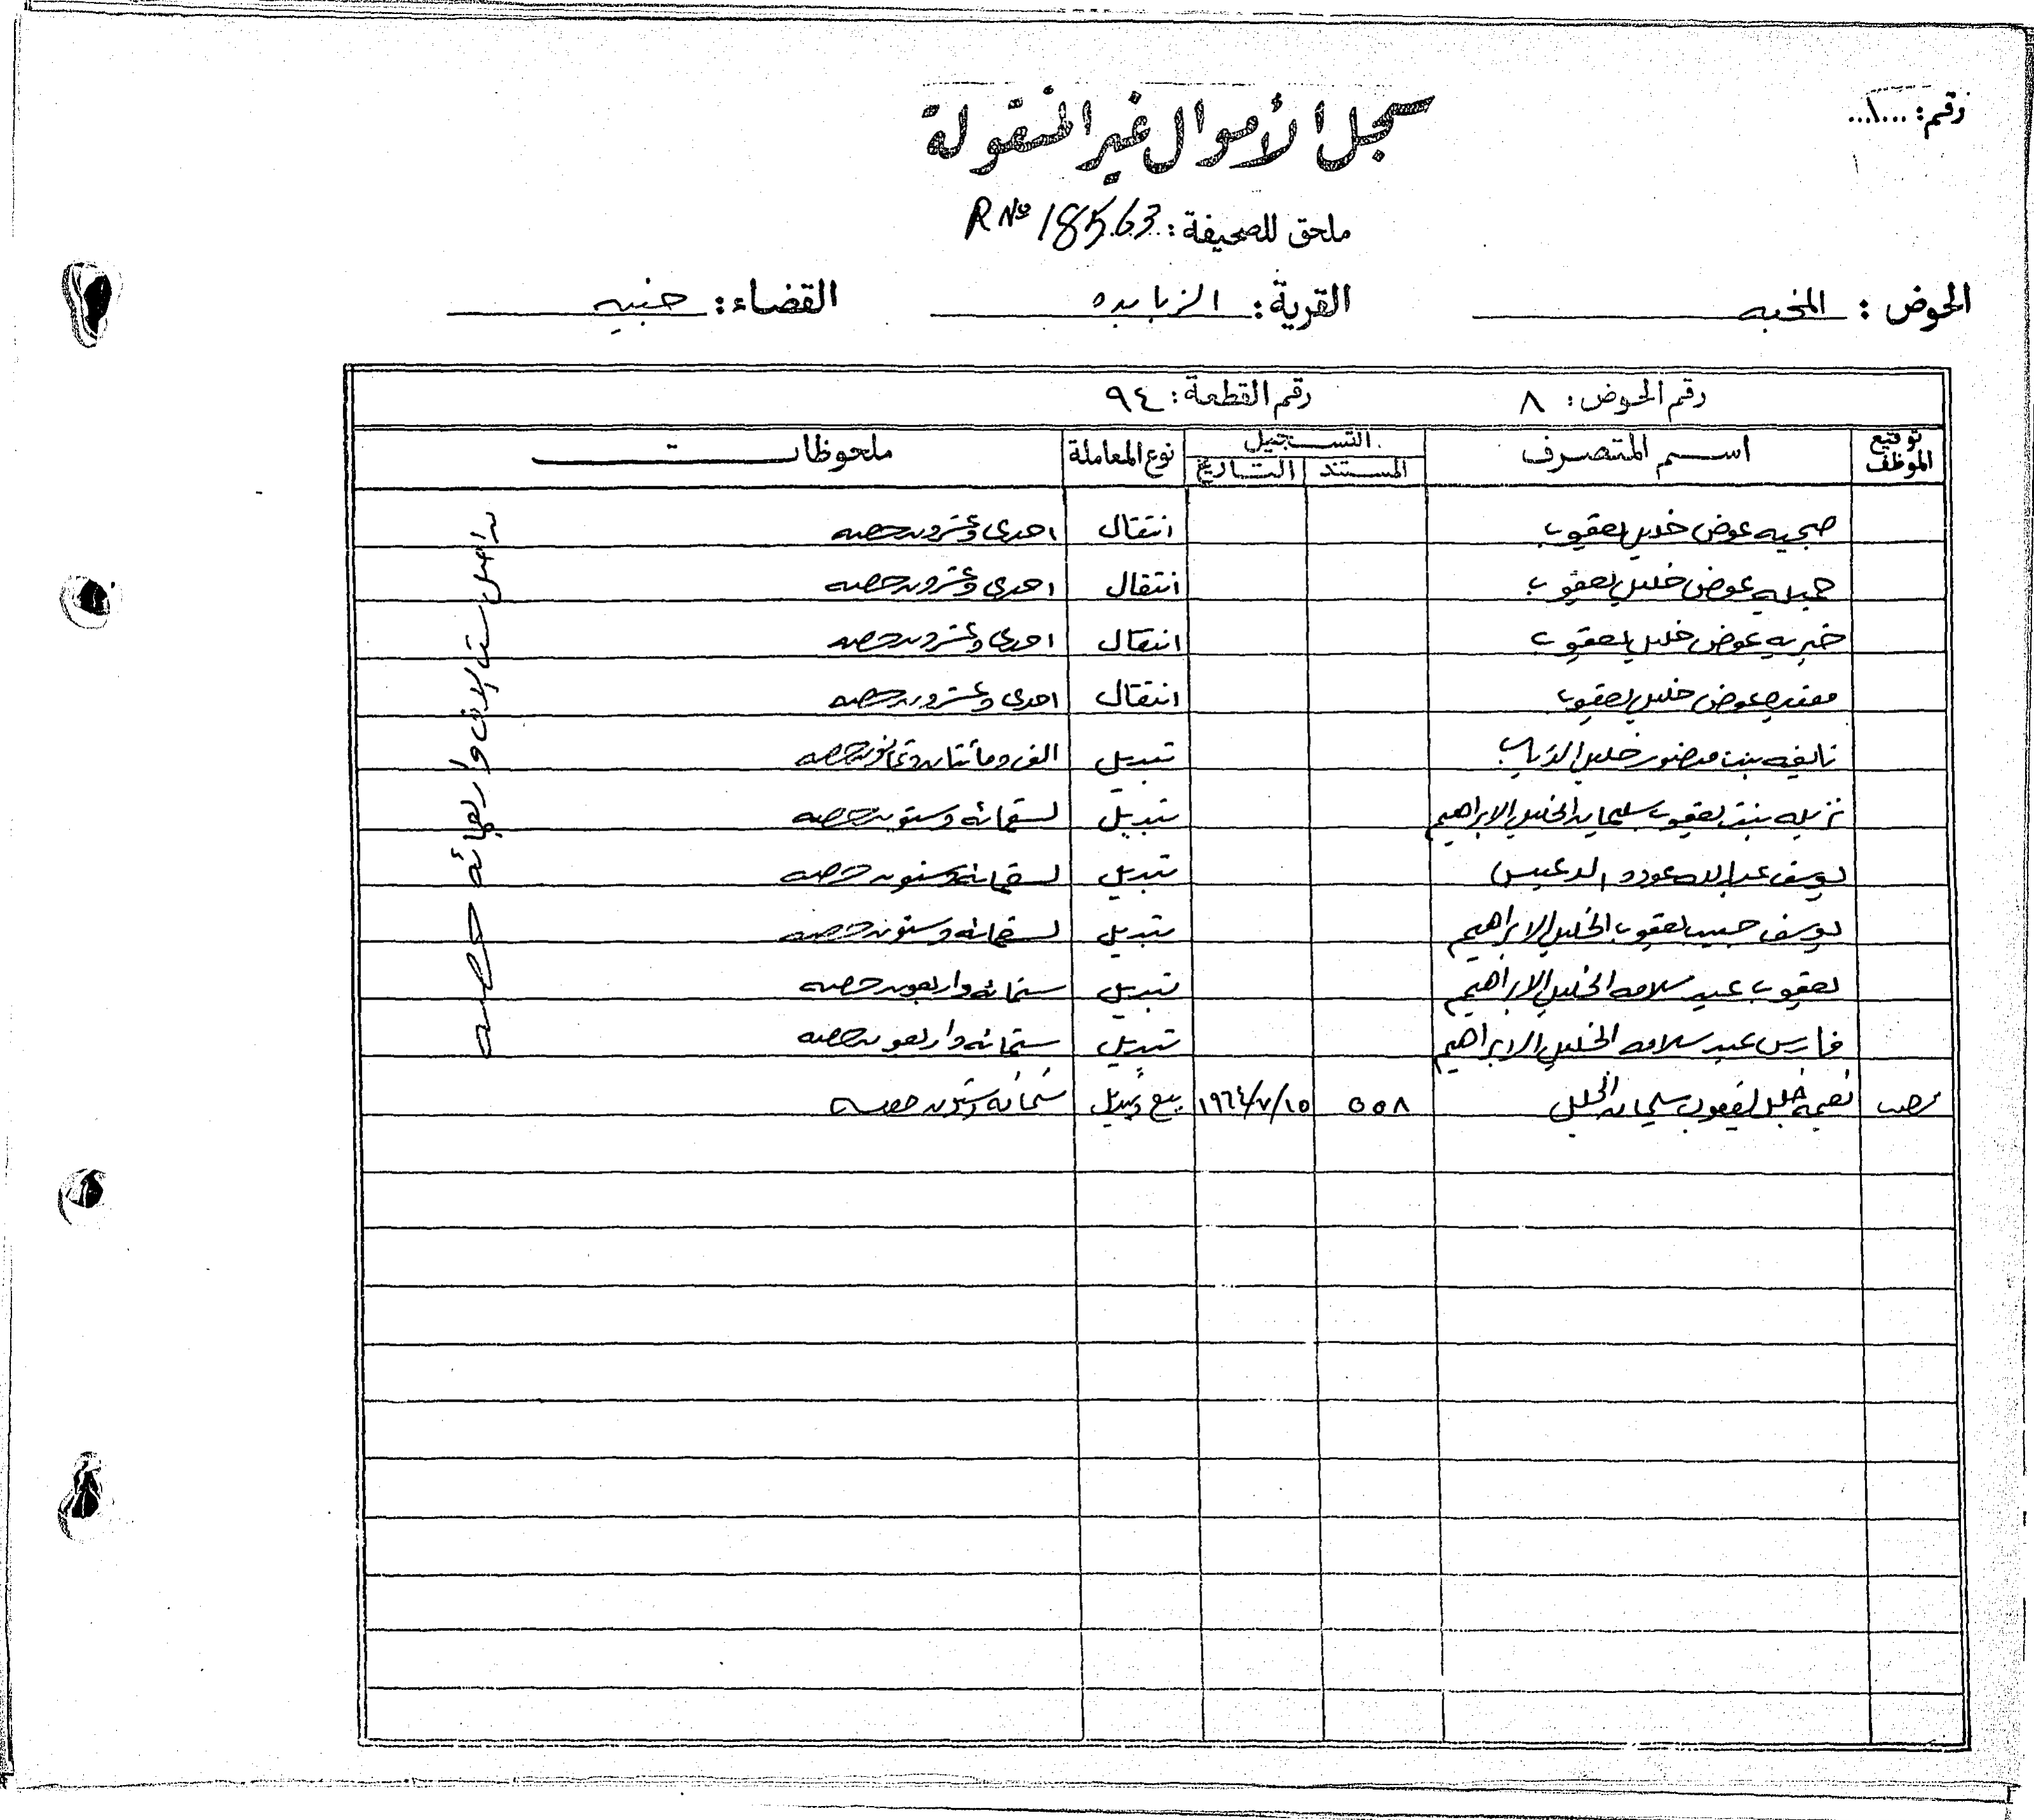 رقم: ...١...
سجل الأموال غير المنقولة
ملحق للصحيفة: R No 18563
الحوض: المخبه القرية: الزبابده القضاء: جنين
رقم الحوض: ٨ رقم القطعة: ٩٤
توقيع الموظف اسم المتصرف التسجيل نوع المعاملة ملحوظات
المستند التاريخ
صبحيه عوض خليل يعقوب انتقال احدى وعشرون حصه
جميله عوض خليل يعقوب انتقال احدى وعشرون حصه
خيريه عوض خليل يعقوب انتقال احدى وعشرون حصه
عوض خليل يعقوب انتقال احدى وعشرون حصه
بنت منصور خليل الدياب تبديل الف ومائتان وثمانون حصه
نزيله بنت يعقوب سليمان الخليل الابراهيم تبديل تسعمائه وستون حصه
يوسف عبدالله عوده الدعيبس تبديل تسعمائه وستون حصه
يوسف حبيب يعقوب الخليل الابراهيم تبديل تسعمائه وستون حصه
يعقوب عيد سلامه الخليل الابراهيم تبديل ستمائه واربعون حصه
فارس عيد سلامه الخليل الابراهيم تبديل ستمائه واربعون حصه
نعيمه خليل يعقوب سليمان الخليل ٥٥٨ ١٩٦٤/٧/١٥ بيع وتبديل وستون حصه
من اصل ستة الاف واربعمائه حصه